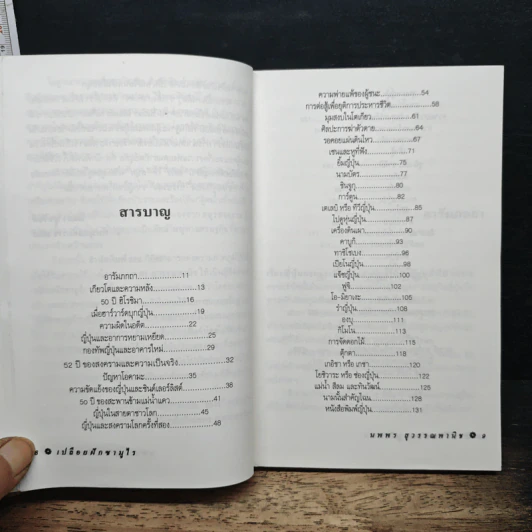 สารบาญ
อารัมภกถา..............11
เกียวโตและความหลัง..............13
50 ปี ฮิโรชิมา..............16
เมื่อฮาร์วาร์ดบุกญี่ปุ่น..............19
ความผิดในอดีต..............22
ญี่ปุ่นและอาการหยามเหยียด..............25
กองทัพญี่ปุ่นและอาคารใหม่..............29
52 ปีของสงครามและความเป็นจริง..............32
ปัญหาโอกามะ..............35
ความขัดแย้งของญี่ปุ่นและชินด์เลอร์ลิสต์..............38
50 ปีของสะพานข้ามแม่น้ำแคว..............40
ญี่ปุ่นในสายตาชาวโลก..............45
ญี่ปุ่นและสงครามโลกครั้งที่สอง..............48
เปลือยฝักซามูไร
ความพ่ายแพ้ของผู้ชนะ..............54
การต่อสู้เพื่อยุติการประหารชีวิต..............58
มุมสงบในโตเกียว..............61
ศิลปะการฆ่าตัวตาย..............64
รอคอยแผ่นดินไหว..............67
เซนและหูที่ฟัง..............71
ยิ้มญี่ปุ่น..............75
นามบัตร..............77
ชินจูกุ..............80
การ์ตูน..............82
เตเลบิ หรือ ทีวีญี่ปุ่น..............85
ไปดูหุ่นญี่ปุ่น..............87
เครื่องดื่มเผา..............90
คาบูกิ..............93
ทาชิโชเบง..............96
เบียในญี่ปุ่น..............98
แจ๊ซญี่ปุ่น..............100
ฟูจิ..............102
โอ-มิยาเงะ..............105
รำญี่ปุ่น..............108
องบุ..............111
กิโมโน..............113
การจัดดอกไม้..............115
ตุ๊กตา..............118
เกอิชา หรือ เกชา..............120
โยชิวาระ หรือ ซ่องญี่ปุ่น..............122
แม่น้ำ สีลม และทันวัฒน์..............125
นามนั้นสำคัญไฉน..............128
หนังสือพิมพ์ญี่ปุ่น..............131
นพพร สุวรรณพานิช